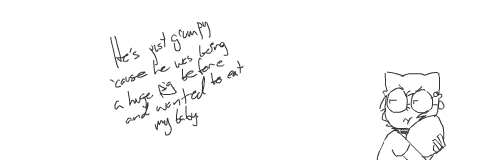 He's just grumpy
'cause he was being
a huge pig before
and wanted to eat
my baby